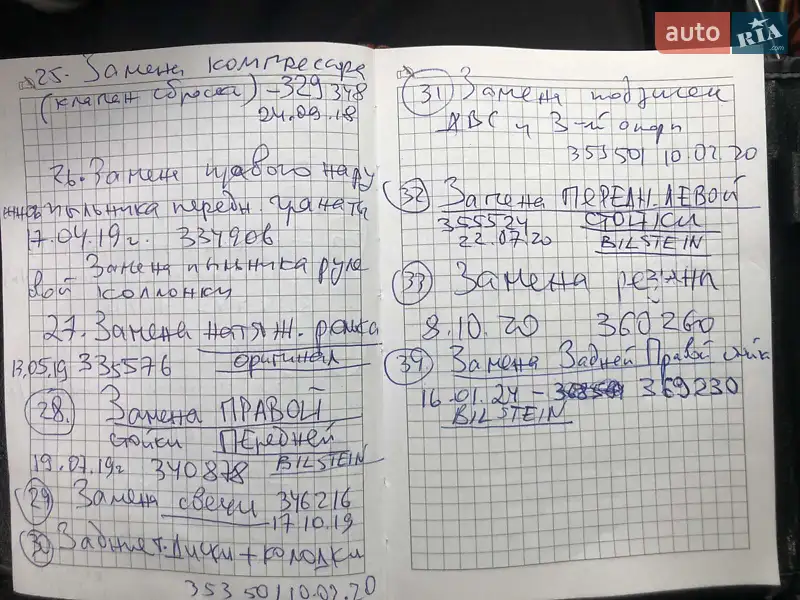 auto RIA .com
25. Замена компрессора
(клапан сброса) - 329 348
24.09.18
26. Замена правого нару
жного пыльника передн. гранаты
17.04.19г. 334906
Замена пыльника руле
вой коллонки
27. Замена натяж. ролика
13.05.19 335576 оригинал
28. Замена ПРАВОЙ
стойки ПЕредней
19.07.19г 340878 BILSTEIN
29 Замена свечи 346216
17.10.19
30 Задние т. диски + колодки
353501 10.02.20
31 Замена подушек
ABC и 3-й опоры
353501 10.02.20
32 Замена ПЕРЕДН. ЛЕВОЙ
355524 СТОЙКИ
22.07.20 BILSTEIN
33 Замена резины
8.10.20 360260
34 Замена Задней Правой стойк
16.01.21 - 369230
BILSTEIN